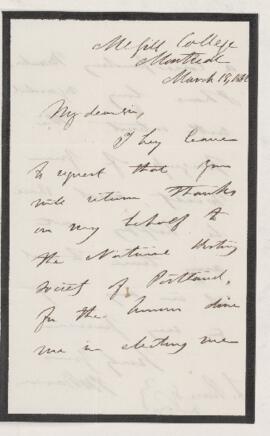 McGill College
Montreal
March 19, 186
My dear Sir,
I beg leave
to request that you
will return thanks
on my behalf to
the Natural History
Society of Portland,
for the honour done
me in electing me